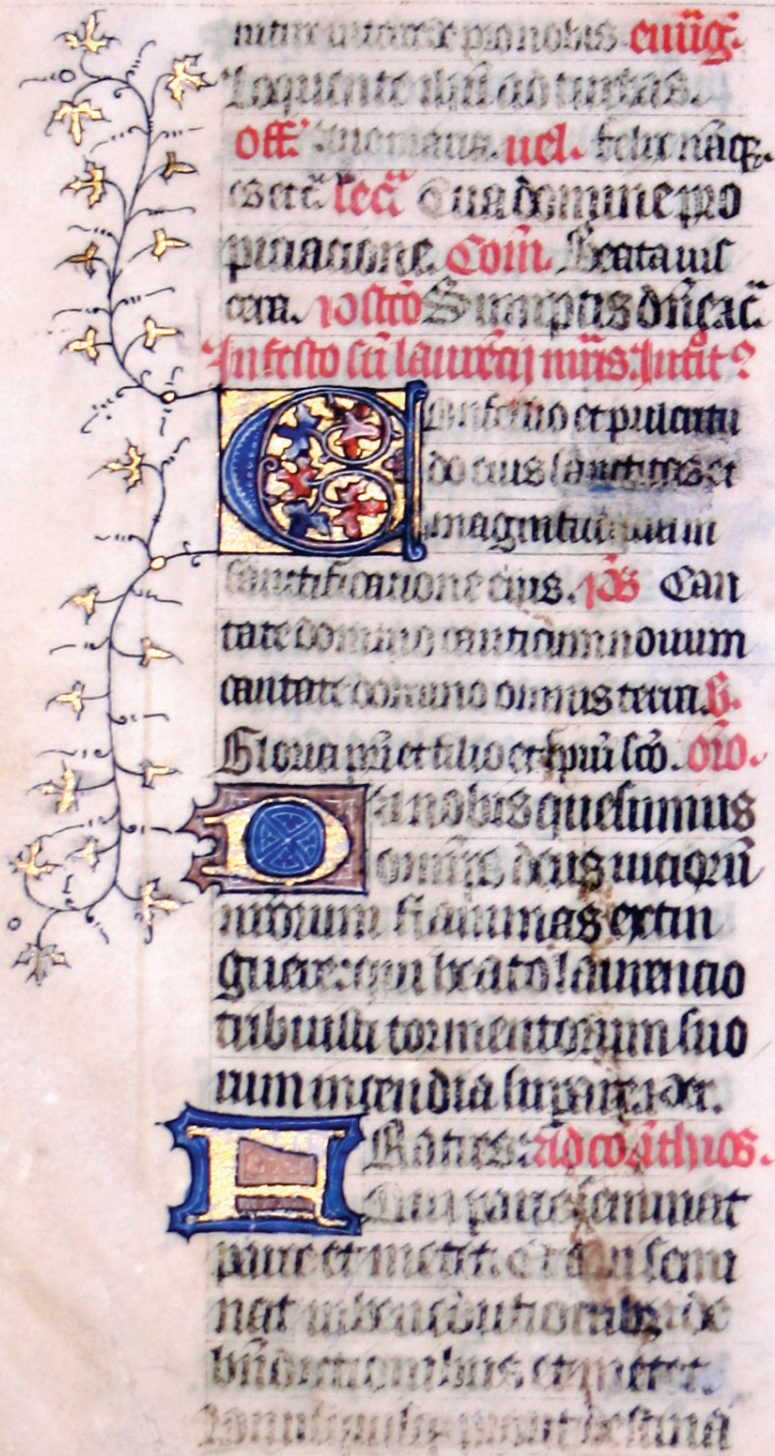 pro nobis. euu͞g.
Loquente ih̅u ad turbas.
off. uel. felix na͞q₃
es etc̅ sec̅a Tua domine pro
piciatione. Com̅. Beata uis
cera. postco̅ Sumptis dn̅e sac̅.
In festo sc̅i laure̅cij mr̅is. Introit᷒
Confessio et pulcritu
do eius sanctitas et
magnificentia in
sanctificatione eius. p̅s Can
tate domino canticum nouum
cantate domino omnis terra. v̅.
Gloria pr̅i et filio et spu̅i sc̅o. oro̅.
Da nobis quesumus
omp̅s deus uicioru̅
nr̅orum flammas extin
guere: qui beato laurencio
tribuisti tormentorum suo
rum incendia supare. per.
Fratres: ad cori̅thios.
Qui parce seminat
parce et metet. Et qui semi
nat in benedictionib₃ de
bn̅dictionibus et metet.